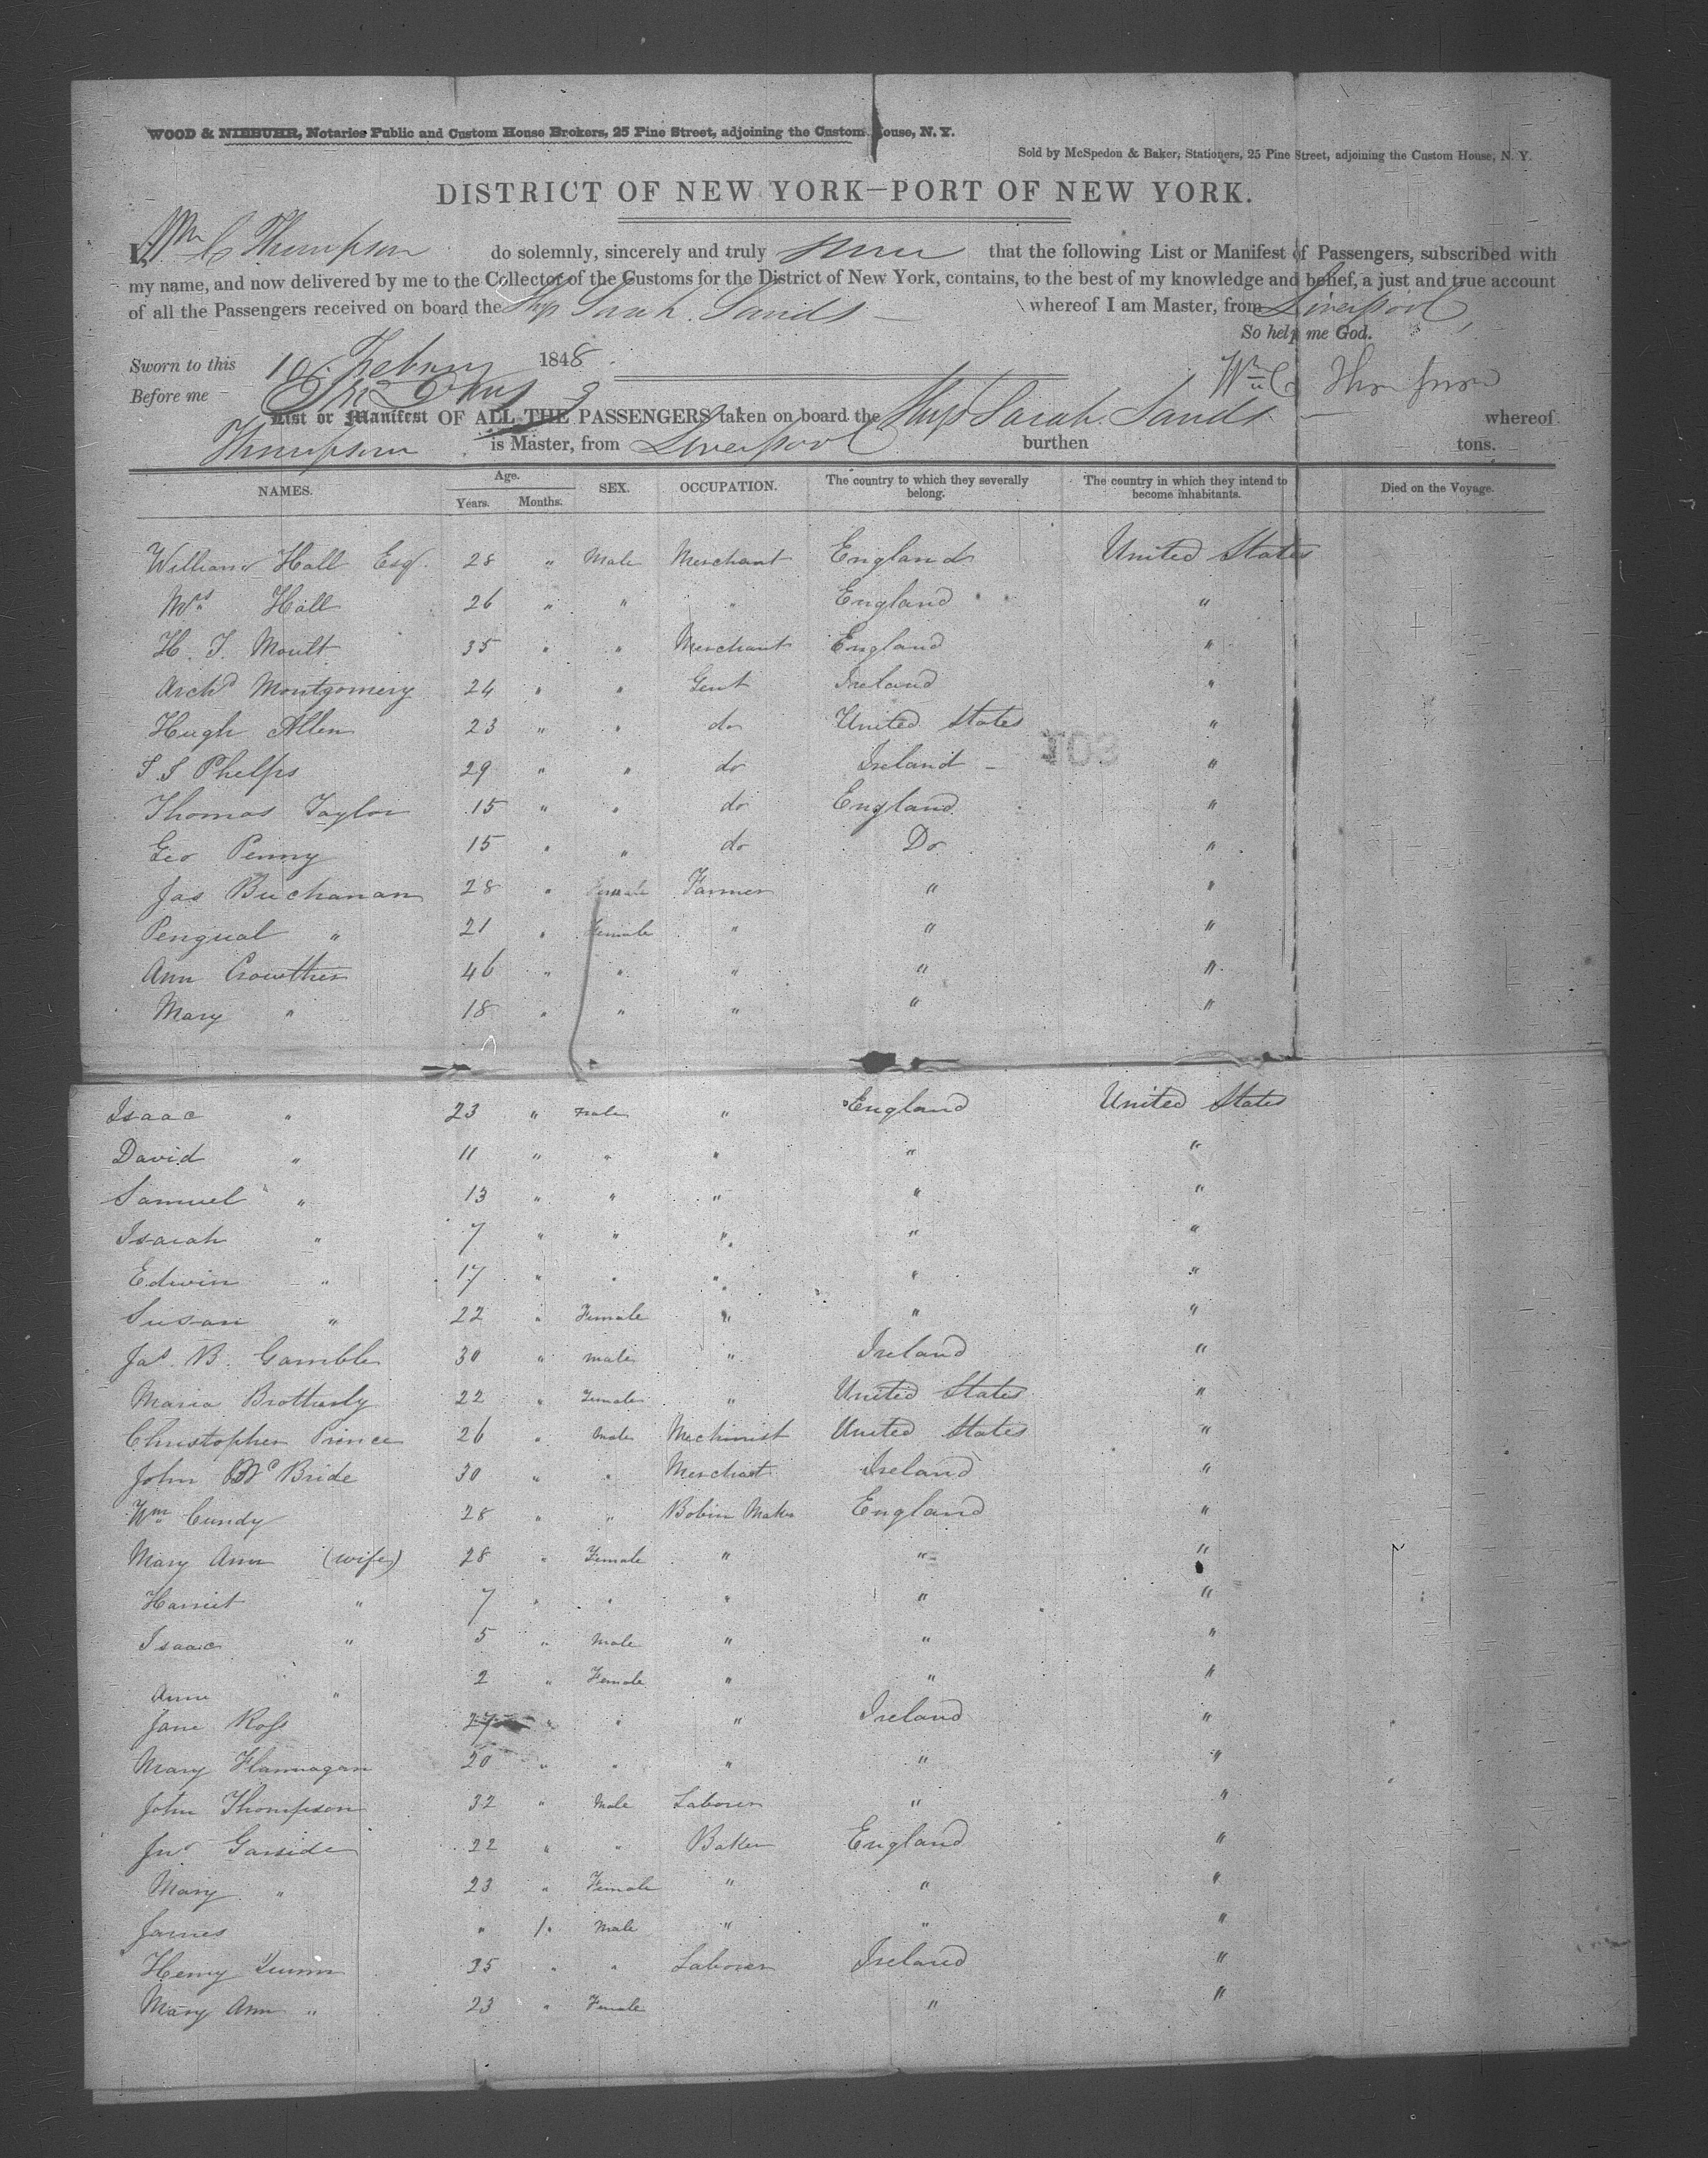 WOOD & NIEBUHR, Notaries Public and Custom House Brokers, 25 Pine Street, adjoining the Custom House, N. Y.
Sold by McSpedon & Baker, Stationers, 25 Pine Street, adjoining the Custom House, N. Y.
DISTRICT OF NEW YORK—PORT OF NEW YORK.
I, Wm C Thompson do solemnly, sincerely and truly swear that the following List or Manifest of Passengers, subscribed with
my name, and now delivered by me to the Collector of the Customs for the District of New York, contains, to the best of my knowledge and belief, a just and true account
of all the Passengers received on board the Ship Sarah Sands whereof I am Master, from Liverpool
So help me God.
Sworn to this 10 Febry 1848 Wm C Thompson
Before me
List or Manifest OF ALL THE PASSENGERS taken on board the Ship Sarah Sands whereof
Thompson is Master, from Liverpool burthen tons.
NAMES. Age. Years. Months. SEX. OCCUPATION. The country to which they severally belong. The country in which they intend to become inhabitants. Died on the Voyage.
William Hall Esq. 28 " Male Merchant England United States
Mrs Hall 26 " " " England "
H. J. Moult 35 " " Merchant England "
Archd Montgomery 24 " " Gent Ireland "
Hugh Allen 23 " " do United States "
S. S Phelps 29 " " do Ireland "
Thomas Taylor 15 " " do England "
Geo Penny 15 " " do Do "
Jas Buchanan 28 " Female Farmer " "
" 21 " Female " " "
Ann Crowther 46 " " " " "
Mary " 18 " " " " "
Isaac " 23 " Male " England United States
David " 11 " " " " "
Samuel " 13 " " " " "
Isaiah " 7 " " " " "
Edwin " 17 " " " " "
Susan " 22 " Female " " "
Jas. B. Gamble 30 " Male " Ireland "
Maria 22 " Female " United States "
Christopher Prince 26 " Male Mechinist United States "
John McBride 30 " " Merchant Ireland "
Wm Cundy 28 " " Bobin Maker England "
Mary Ann (wife) 28 " Female " " "
Harriet " 7 " " " " "
Isaac " 5 " Male " " "
Anne " 2 " Female " " "
Jane Ross 27 " " " Ireland "
Mary Flannagan 20 " " " " "
John Thompson 32 " Male Laborer " "
Jno Garside 22 " " Baker England "
Mary " 23 " Female " " "
James " 1 Male " " "
Henry Quinn 35 " " Laborer Ireland "
Mary Ann " 23 " Female " "